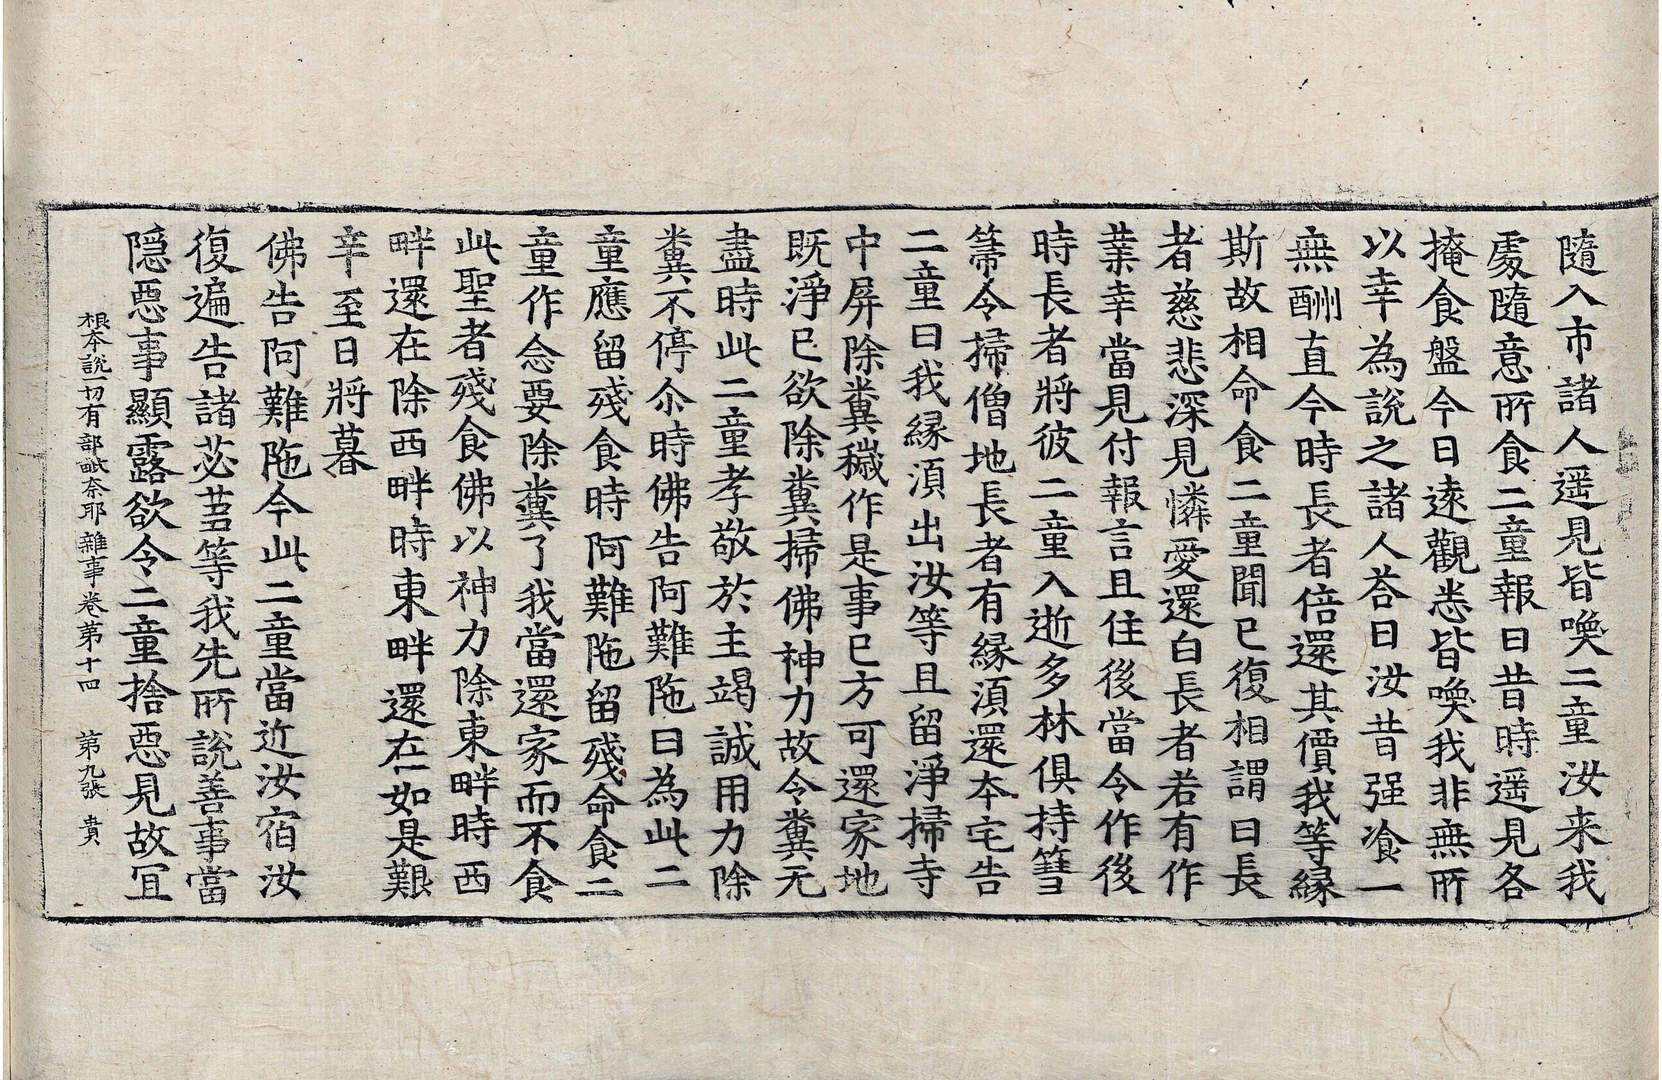 隨入市諸人遥見皆喚二童汝来我
處隨意所食二童報曰昔時遥見各
掩食盤今日遠觀悉皆喚我非無所
以幸為說之諸人荅曰汝昔强飡一
無酬直今時長者倍還其價我等縁
斯故相命食二童聞已復相謂曰長
者慈悲深見憐愛還白長者若有作
業幸當見付報言且住後當令作後
時長者將彼二童入逝多林俱持篲
箒令掃僧地長者有縁湏還本宅告
二童曰我縁湏出汝等且留淨掃寺
中屏除糞穢作是事已方可還家地
既淨已欲除糞掃佛神力故令糞无
盡時此二童孝敬於主竭誠用力除
糞不停尒時佛告阿難陁曰為此二
童應留殘食時阿難陁留殘命食二
童作念要除糞了我當還家而不食
此聖者殘食佛以神力除東畔時西
畔還在除西畔時東畔還在如是艱
辛至日將暮
佛告阿難陁今此二童當近汝宿汝
復遍告諸苾蒭等我先所說善事當
隠惡事顯露欲令二童捨惡見故冝
根本說一切有部毗奈耶雜事卷第十四　第九張　貴